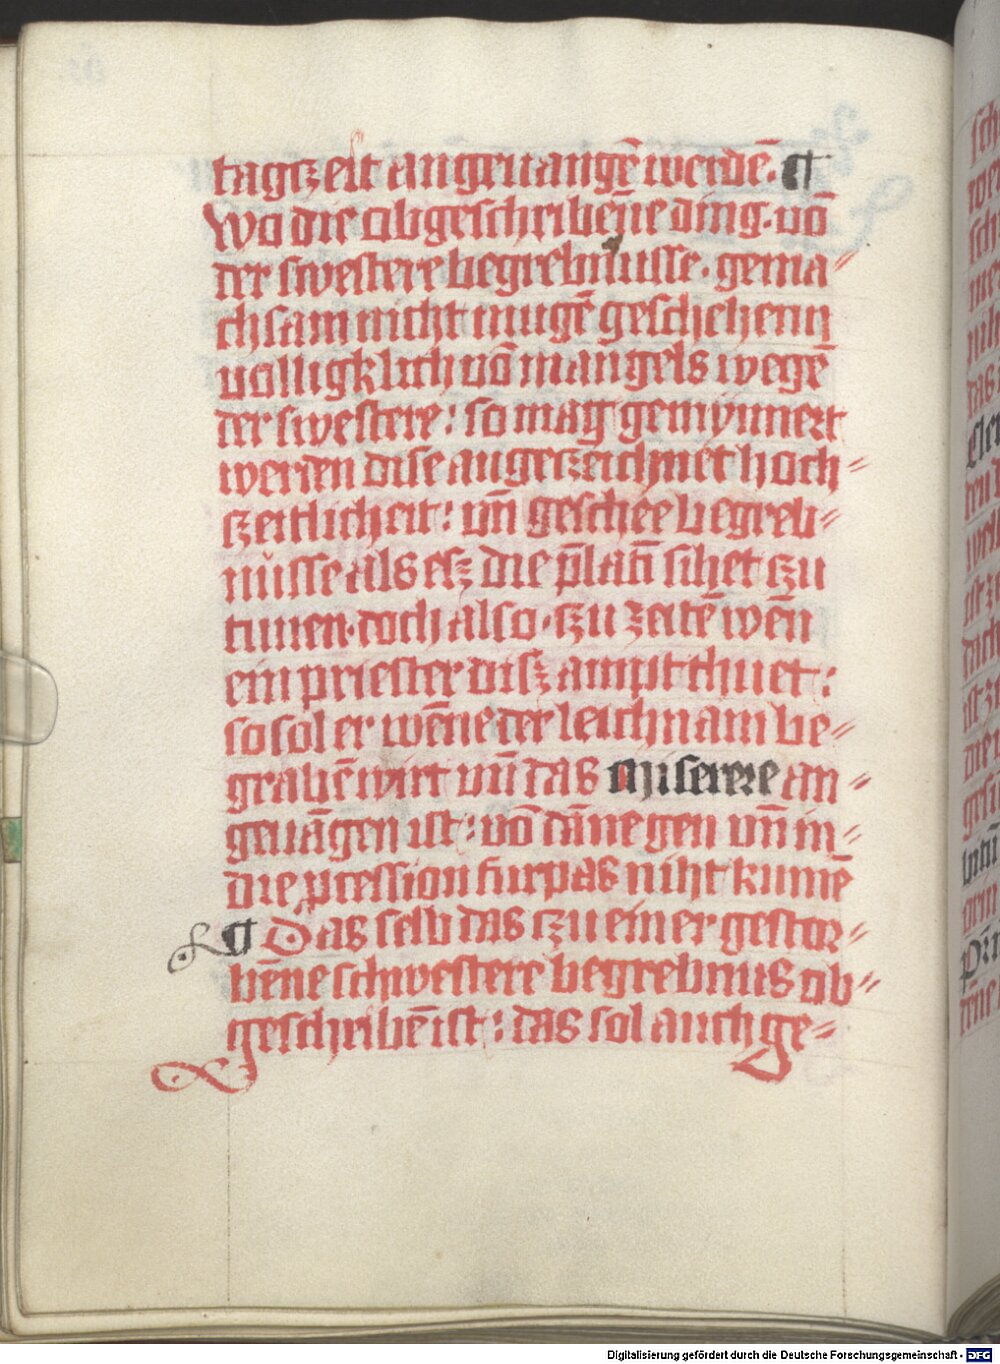 tagczeit angeuangē werdē. ¶
Wo die abgeschribēne ding. vō
der swestere begrebnusse. gema〃
chsam nicht mugē geschehenn
volligklich vō mangels wegē
der swestere: so mag gemynnert
werden dise angeczeichnet hoch〃
czeitlicheit: vn̄ geschee begreb〃
nůsse als esz die p̄sān sihet czu
tunen. doch also. czu zeitē wēn
ein priester disz ampt thuet:
so sol er wēne der leichnam be〃
grabē wirt vn̄ das Miserere an〃
geuāgen ist: vō dāne gen vn̄ in〃
die pcession furpas niht kumē
¶ Das selb das czu einer gestor〃
bēne schwestere begrebnus ob〃
geschribē ist: das sol auch ge〃
Digitalisierung gefördert durch die Deutsche Forschungsgemeinschaft - DFG